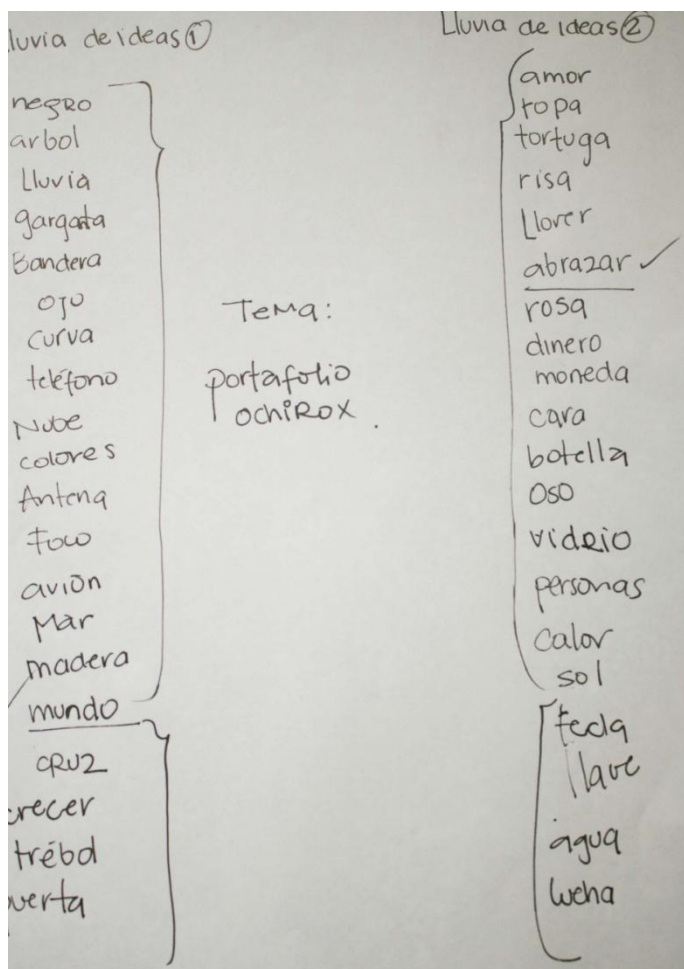 lluvia de ideas ①
negro
arbol
Lluvia
gargata
Bandera
ojo
curva
teléfono
Nube
colores
Antena
Foco
avión
Mar
madera
mundo
cruz
crecer
trébol
uerta
Tema:
portafolio
ochirox.
Lluvia de ideas ②
amor
ropa
tortuga
risa
Llover
abrazar ✓
rosa
dinero
moneda
cara
botella
oso
vidrio
personas
calor
sol
tecla
llave
agua
lucha